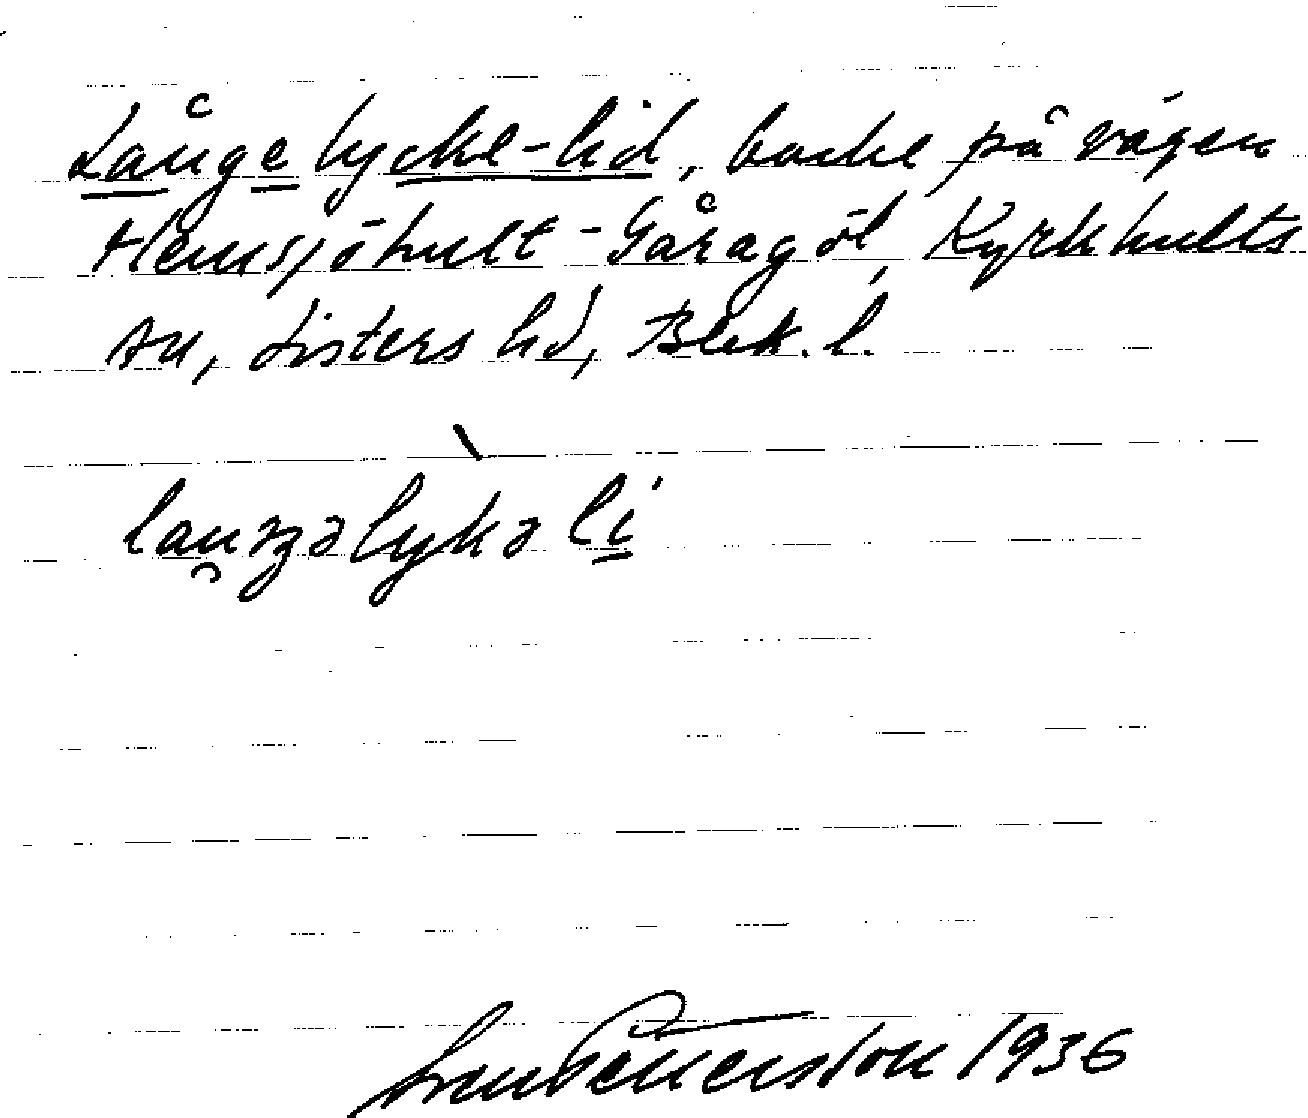 Långelycke-lid, backe på vägen
Hemsjöhult - Gåragöl, Kyrkhults
sn, Listers hd, Blek. l.
lauŋəlykə li
Sven Petterson 1936